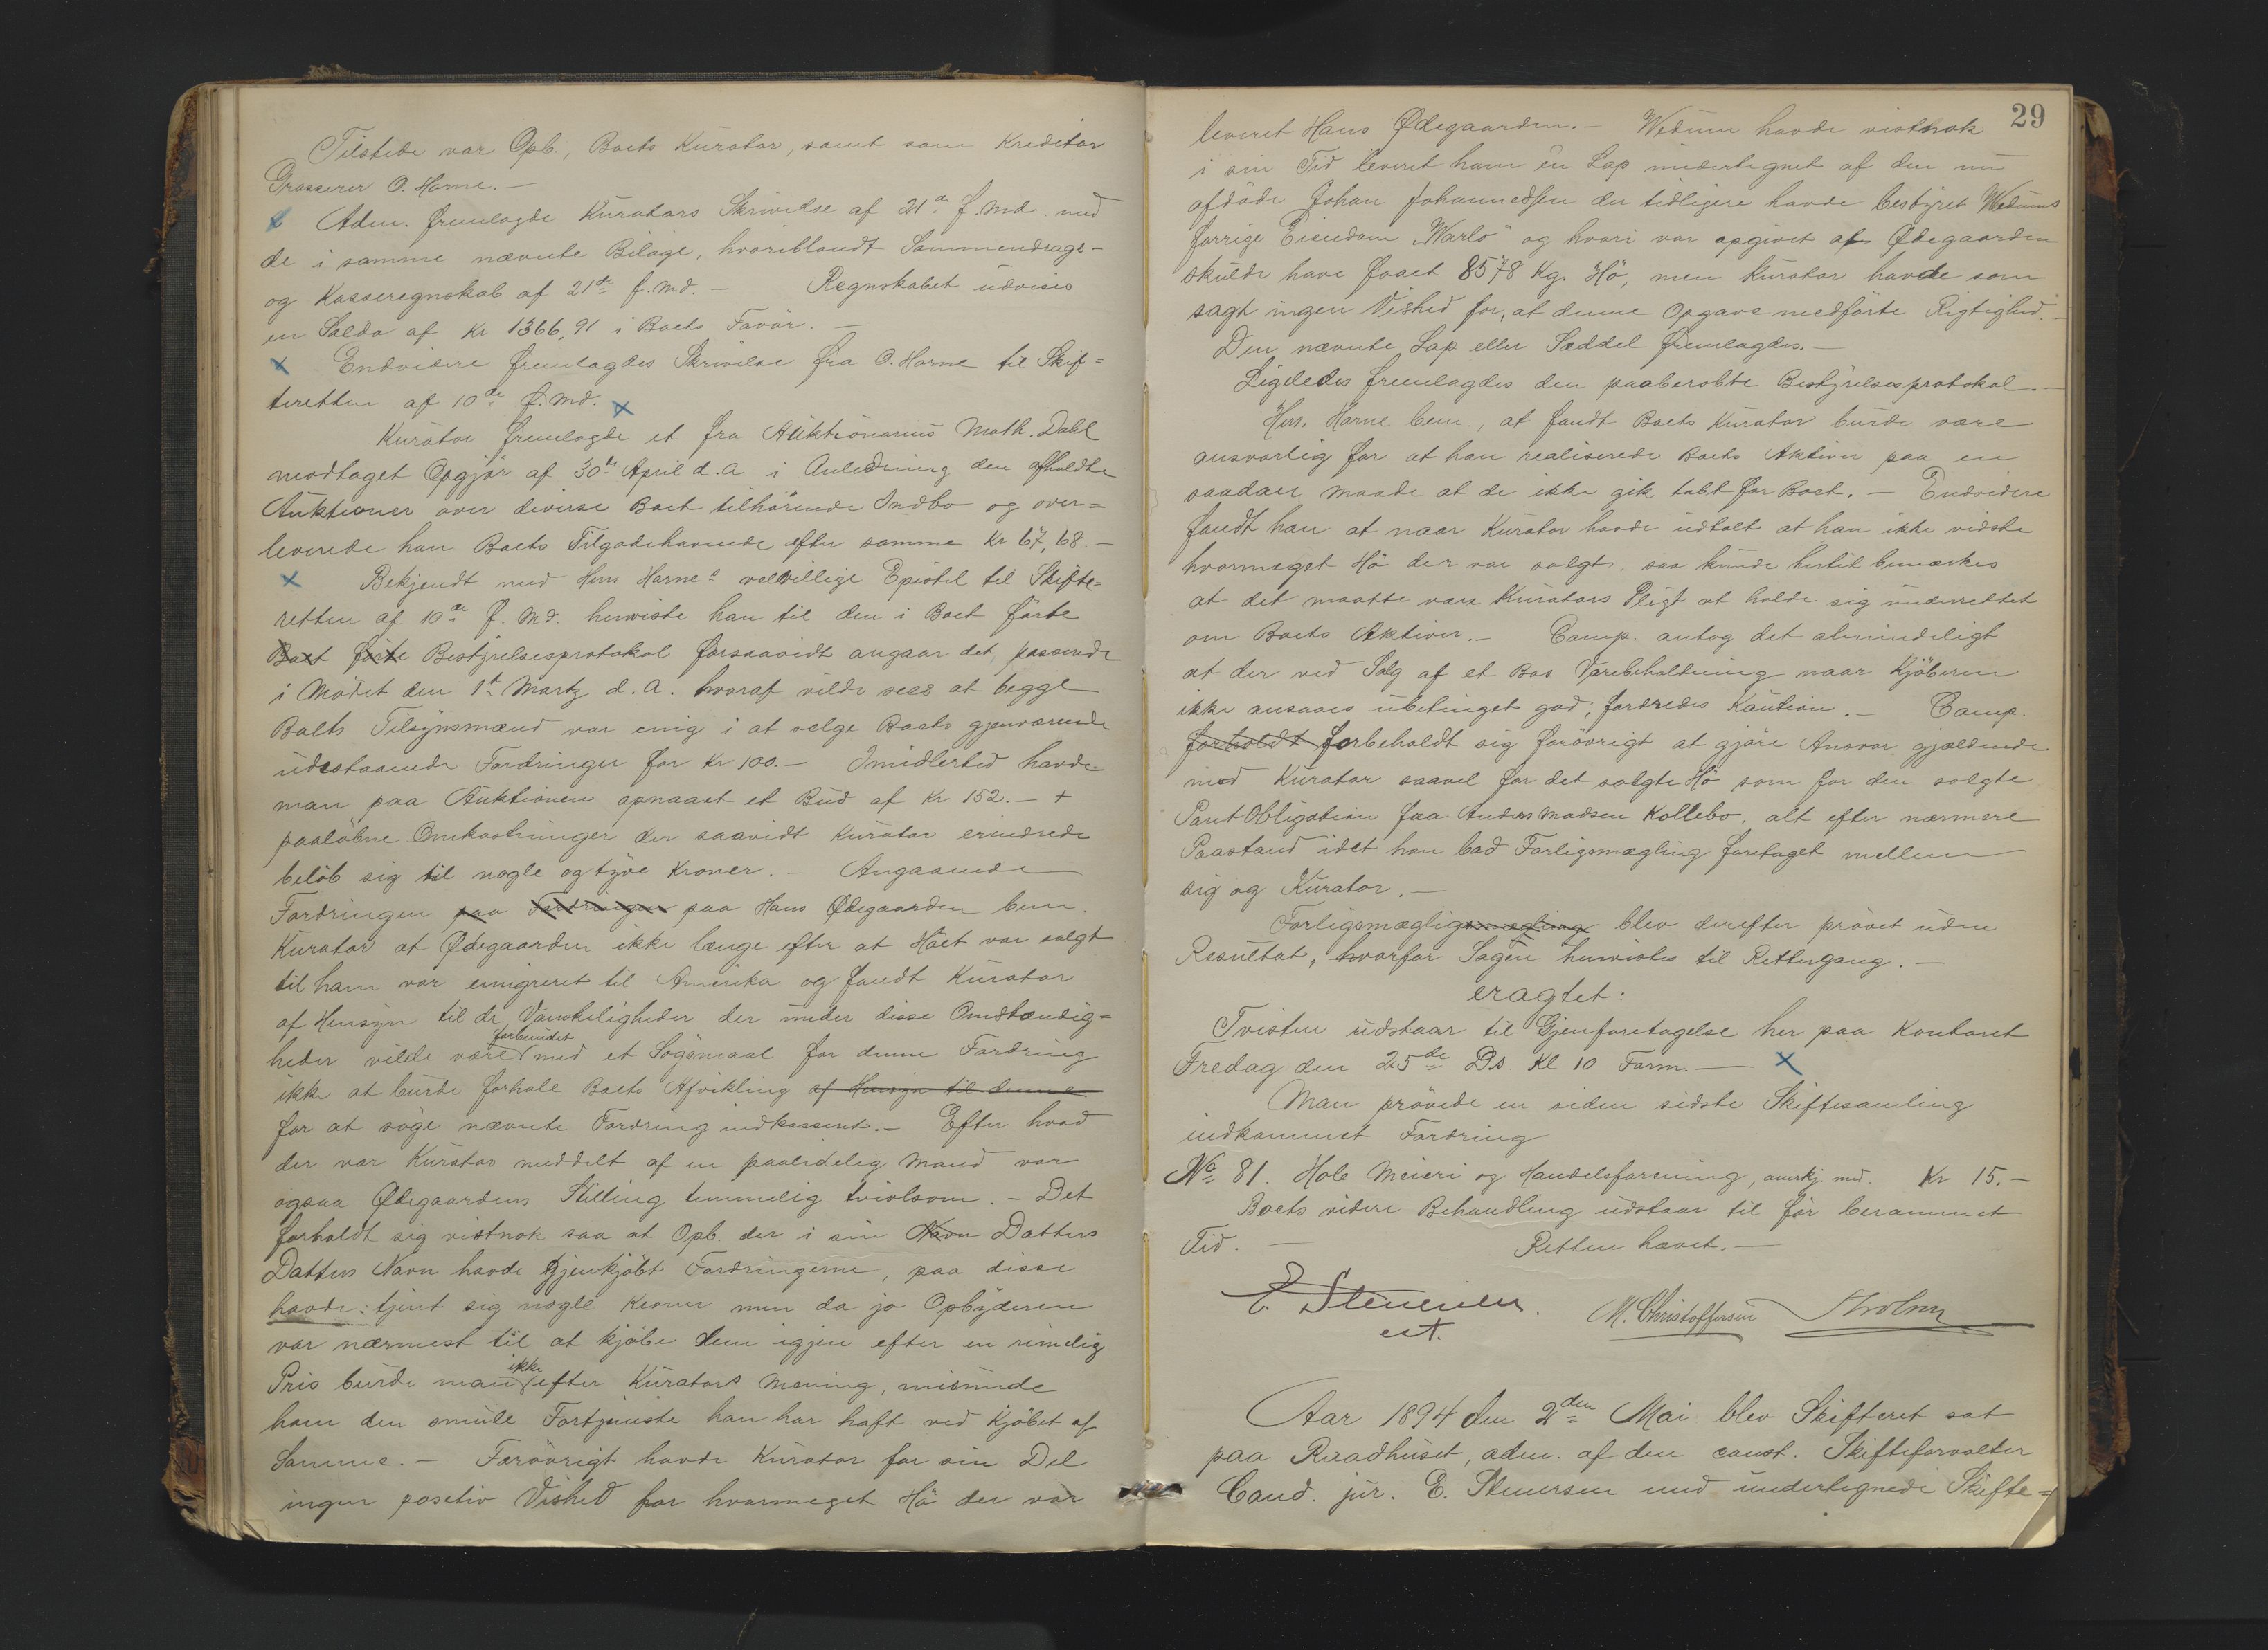 Tilstede var Opb., Boets Kurator, samt som Kreditor
Grosserer O. Horne. —
Adm. fremlagde Kurators Skrivelse af 21de f. Md. med
de i samme nævnte Bilage, hvoriblandt Sammendrags-
og Kasseregnskab af 21de f. Md. — Regnskabet udviser
en Saldo af Kr 1366,91 i Boets Favør. —
Endvidere fremlagdes Skrivelse fra O. Horne til Skif=
teretten af 10de f. Md.
Kurator fremlagde et fra Auktionarius Math. Dahl
modtaget Opgjør af 30te April d. A i Anledning den afholdte
Auktioner over diverse Boet tilhørende Indbo og over=
leverede han Boets Tilgodehavende efter samme Kr 67,68. —
Bekjendt med Herr Hornes velvillige Epistel til Skifte=
retten af 10de f. Md. henviste han til den i Boet førte
Boet førte Bestyrelsesprotokol forsaavidt angaar det passerede
i Mødet den 1st Martz d. A. hvoraf vilde sees at begge
Boets Tilsynsmænd var enig i at sælge Boets gjenværende
udestaaende Fordringer for Kr 100. — Imidlertid havde
man paa Auktionen opnaaet et Bud af Kr 152. — +
paaløbne Omkostninger der saavidt Kurator erindrede
beløb sig til nogle og tyve Kroner. — Angaaende
Fordringen paa Fordringen paa Hans Ødegaarden bem.
Kurator at Ødegaarden ikke længe efter at Høet var solgt
til ham var emigreret til Amerika og fandt Kurator
af Hensyn til de Vanskeligheder der under disse Omstændig=
heder vilde være forbundet med et Søgsmaal for denne Fordring
ikke at burde forhale Boets Afvikling af Hensyn til denne
for at søge nævnte Fordring indkasseret. — Efter hvad
der var Kurator meddelt af en paalidelig Mand var
ogsaa Ødegaardens Stilling temmelig tvivlsom. — Det
forholdt sig vistnok saa at Opb. der i sin Navn Datters
Datters Navn havde Gjenkjøbt Fordringerne, paa disse
havde tjent sig nogle Kroner men da jo Opbyderen
var nærmest til at kjøbe dem igjen efter en rimelig
Pris burde man ikke efter Kurators Mening, misunde
ham den smule Fortjeneste han har haft ved Kjøbet af
Samme. — Forøvrigt havde Kurator for sin Del
ingen positiv Vished for hvormeget Hø der var
29
leveret Hans Ødegaarden. — Wedum havde vistnok
i sin Tid leveret ham en Lap undertegnet af den nu
afdøde Johan Johannedsen der tidligere havde bestyret Wedums
forrige Eiendom "Warlo" og hvori var opgivet at Ødegaarden
skulde have faaet 8578 Kg. Hø, men Kurator havde som
sagt ingen Vished for, at denne Opgave medførte Rigtighed. —
Den nævnte Lap eller Seddel fremlagdes. —
Ligeledes fremlagdes den paaberobte Bestyrelsesprotokol. —
Herr. Horne bem., at fandt Boets Kurator burde være
ansvarlig for at han realiserede Boets Aktiver paa en
saadan maade at de ikke gik tabt for Boet. — Endvidere
fandt han at naar Kurator havde udtalt at han ikke vidste
hvormeget Hø der var solgt, saa kunde hertil bemærkes
at det maatte være Kurators Pligt at holde sig underrettet
om Boets Aktiver. — Comp. antog det almindeligt
at der ved Salg af et Bos Varebeholdning naar Kjøberen
ikke ansaaes ubetinget god, fordredes Kaution. — Comp.
forholdt forbeholdt sig forøvrigt at gjøre Ansvar gjældende
mod Kurator saavel for det solgte Hø som for den solgte
Pant Obligation fra Anders Madsen Kollebo, alt efter nærmere
Paastand idet han bad Forligsmægling foretaget mellem
sig og Kurator. —
Forligsmægligsmægling blev derefter prøvet uden
Resultat, hvorfor Sagen henvistes til Rettergang. —
eragtet:
Tvisten udstaar til Gjenforetagelse her paa Kontoret
Fredag den 25de Ds. Kl 10 Form. —
Man prøvede en siden sidste Skiftesamling
indkommet Fordring
No 81. Hole Meieri og Handelsforening, anerkj. med. Kr 15. —
Boets videre Behandling udstaar til før berammet
Tid. — Retten hævet. —
E. Stenersen.
cst.
M. Christoffersen
Aar 1894 den 2den Mai blev Skifteret sat
paa Raadhuset, adm. af den const. Skifteforvalter
Cand. jur. E. Stenersen med undertegnede Skifte=